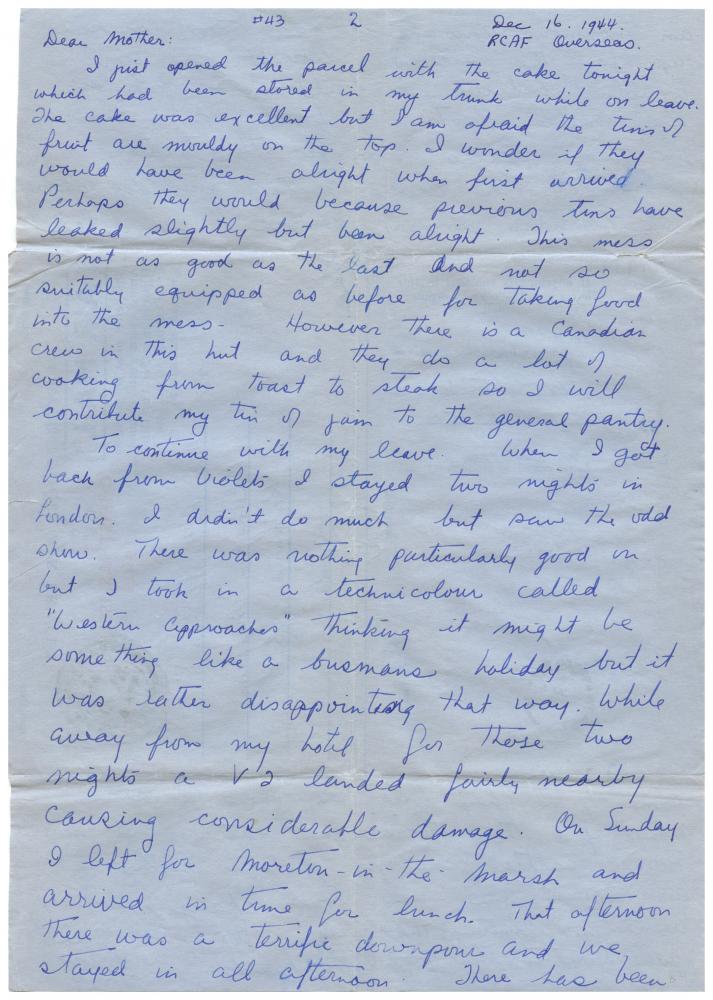 #43 2 Dec 16. 1944.
Dear Mother: RCAF Overseas.
I just opened the parcel with the cake tonight
which had been stored in my trunk while on leave.
The cake was excellent but I am afraid the tins of
fruit are mouldy on the top. I wonder if they
would have been alright when first arrived.
Perhaps they would because previous tins have
leaked slightly but been alright. This mess
is not as good as the last and not so
suitably equipped as before for taking food
into the mess. However there is a Canadian
crew in this hut and they do a lot of
cooking from toast to steak so I will
contribute my tin of jam to the general pantry.
To continue with my leave. When I got
back from Violets I stayed two nights in
London. I didn't do much but saw the odd
show. There was nothing particularly good on
but I took in a technicolour called
"Western Approaches" thinking it might be
something like a busmans holiday but it
was rather disappointing that way. While
away from my hotel for those two
nights a V2 landed fairly nearby
causing considerable damage. On Sunday
I left for Moreton-in-the-Marsh and
arrived in time for lunch. That afternoon
there was a terrific downpour and we
stayed in all afternoon. There has been